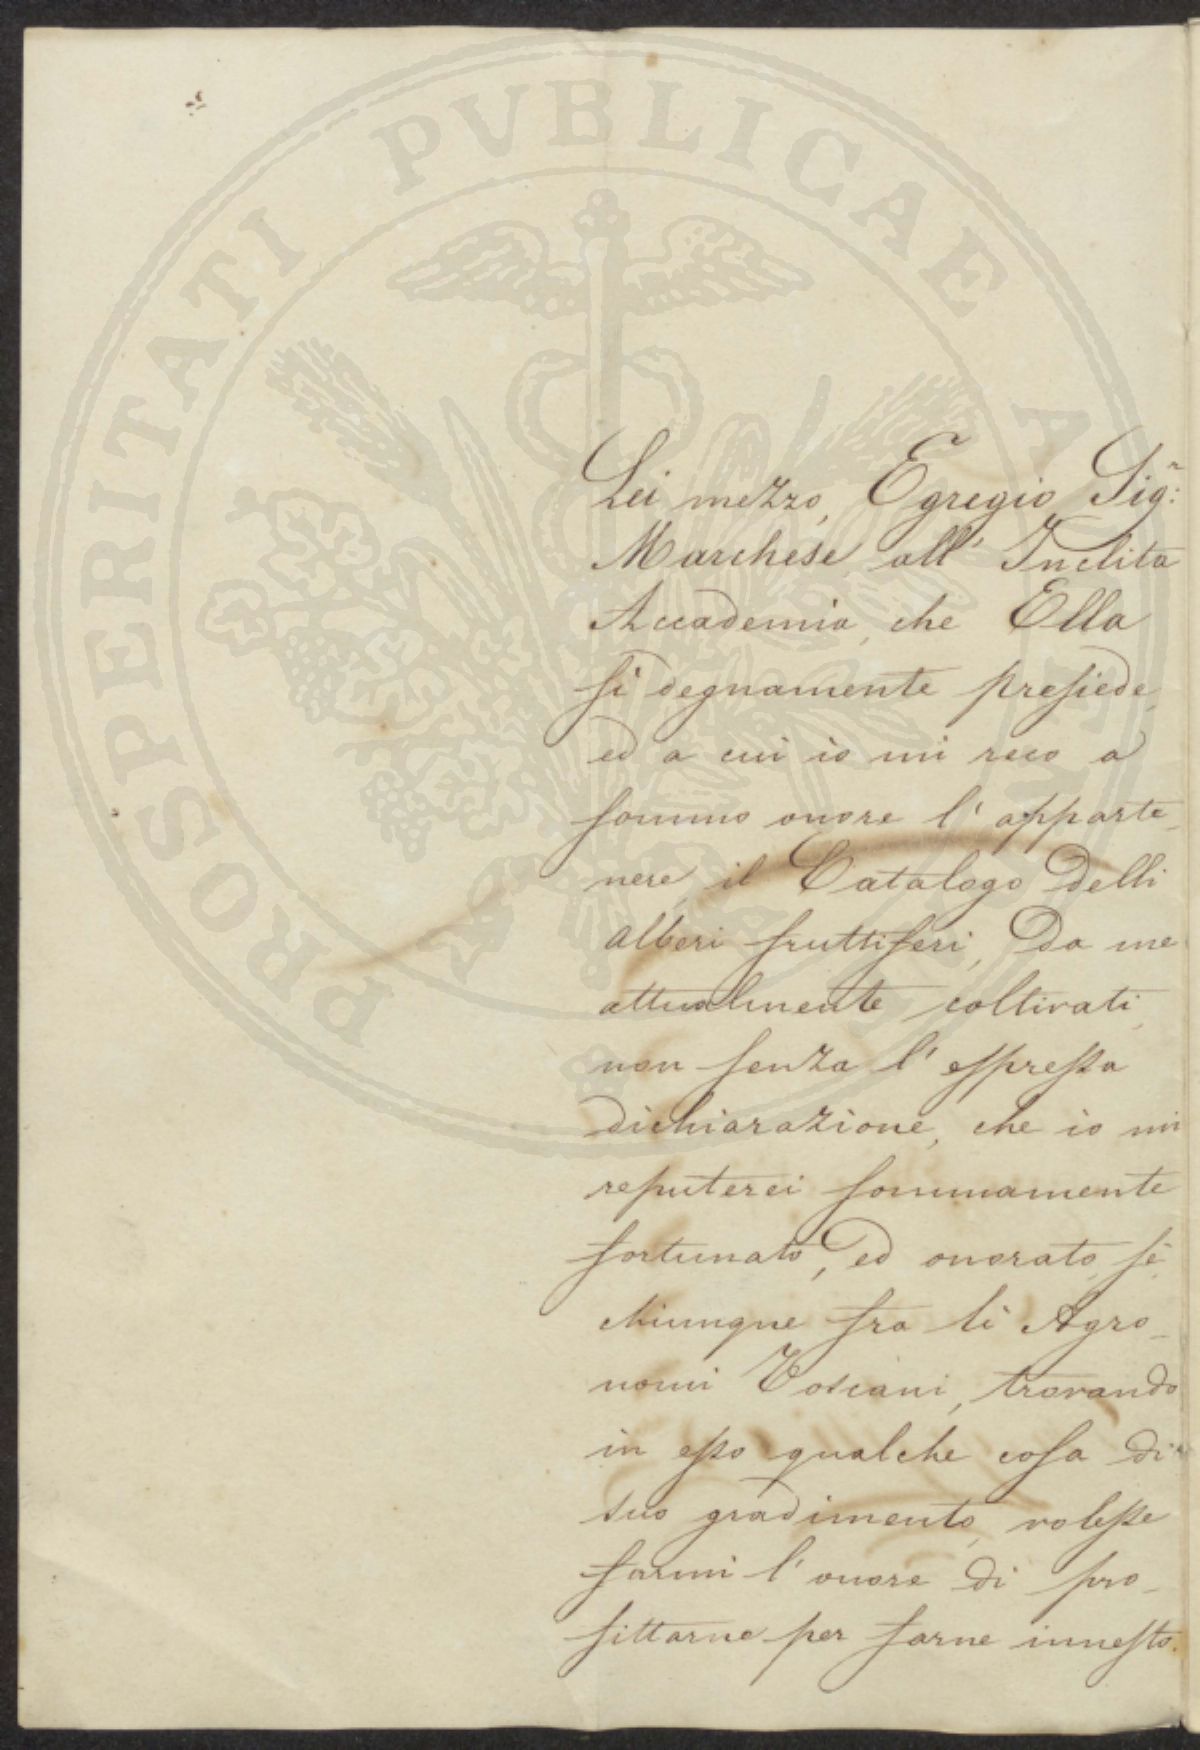 PROSPERITATI PVBLICAE A
Lei mezzo, Egregio Sig:r
Marchese, all' Inclita
Accademia, che Ella
sì degnamente presiede,
ed a cui io mi reco a
sommo onore l' apparte_
nere, il Catalogo delli
alberi fruttiferi, da me
attualmente coltivati,
non senza l' espressa
dichiarazione, che io mi
reputerei sommamente
fortunato, ed onorato, se
chiunque fra li Agro_
nomi Toscani, trovando
in esso qualche cosa di
suo gradimento, volesse
farmi l' onore di pro_
fittarne per farne innesto.